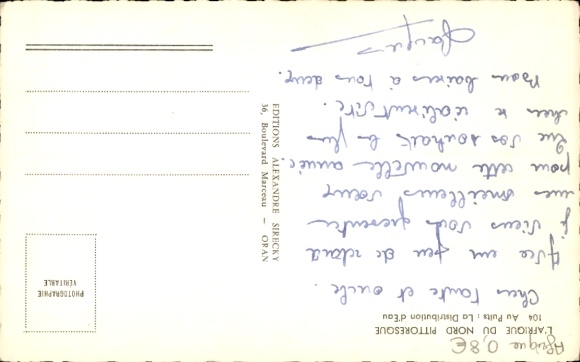 Afrique 0,8€
L'AFRIQUE DU NORD PITTORESQUE
104 Au Puits : La Distribution d'Eau
Chers tante et oncle.
Avec un peu de retard
je viens vous présenter
mes meilleurs vœux
pour cette nouvelle année.
Que vos souhaits les plus
chers se réalisent vite.
Bons baisers à tous deux.
Jacques
EDITIONS ALEXANDRE SIRECKY
36, Boulevard Marceau - ORAN
PHOTOGRAPHIE
VÉRITABLE